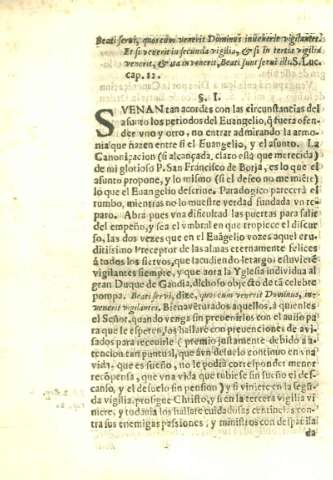 Beati servi, quos cum venerit Dominus invenerit vigilantes.
Et si venerit in secunda vigilia, & si in tertia vigilia
venerit, & ita invenerit, Beati sunt servi illi. S. Luc.
cap. 12.
§. I.
SVENAN tan acordes con las circunstancias del
asunto los periodos del Euangelio, q̃ fuera ofen-
der vno y otro, no entrar admirando la armo-
nia que hazen entre si el Euangelio, y el asunto. La
Canonizacion (si alcançada, claro està que merecida)
de mi glorioso P. San Francisco de Borja, es lo que el
asunto propone, y lo mismo (si el deseo no me miẽte)
lo que el Euangelio descriue. Paradogico parecerà el
rumbo, mientras no lo muestre verdad fundada vn re-
paro. Abra pues vna dificultad las puertas para salir
del empeño, y sea el vmbral en que tropiece el discur-
so, las dos vezes que en el Euãgelio vozes aquel eru-
ditissimo Preceptor de las almas eternamente felices
à todos los sieruos, que sacudiendo letargos estuvierẽ
vigilantes siempre, y que aora la Yglesia individua al
gran Duque de Gandia, dichoso objecto de tã celebre
pompa. Beati servi, dize, quos cum venerit Dominus, in-
venerit vigilantes. Bienaventurados aquellos, à quienes
el Señor, quando venga sin prevenirlos con el auiso pa
ra que le esperen, los hallàre con prevenciones de avi-
sados para recevirle (premio justamente debido à a-
tencion tan puntual, que aun desuelo continuo en vna
vida, que es sueño, no le podia corresponder menor
recõpensa, que vna vida que tubiese sin sueño el des-
canso, y el desuelo sin pension) y si viniere en la segũ-
da vigilia, prosigue Christo, y si en la tercera vigilia vi
niere, y todania los hallare cuidadosas centinelas con-
tra sus enemigas passiones, y ministros con despauila
da